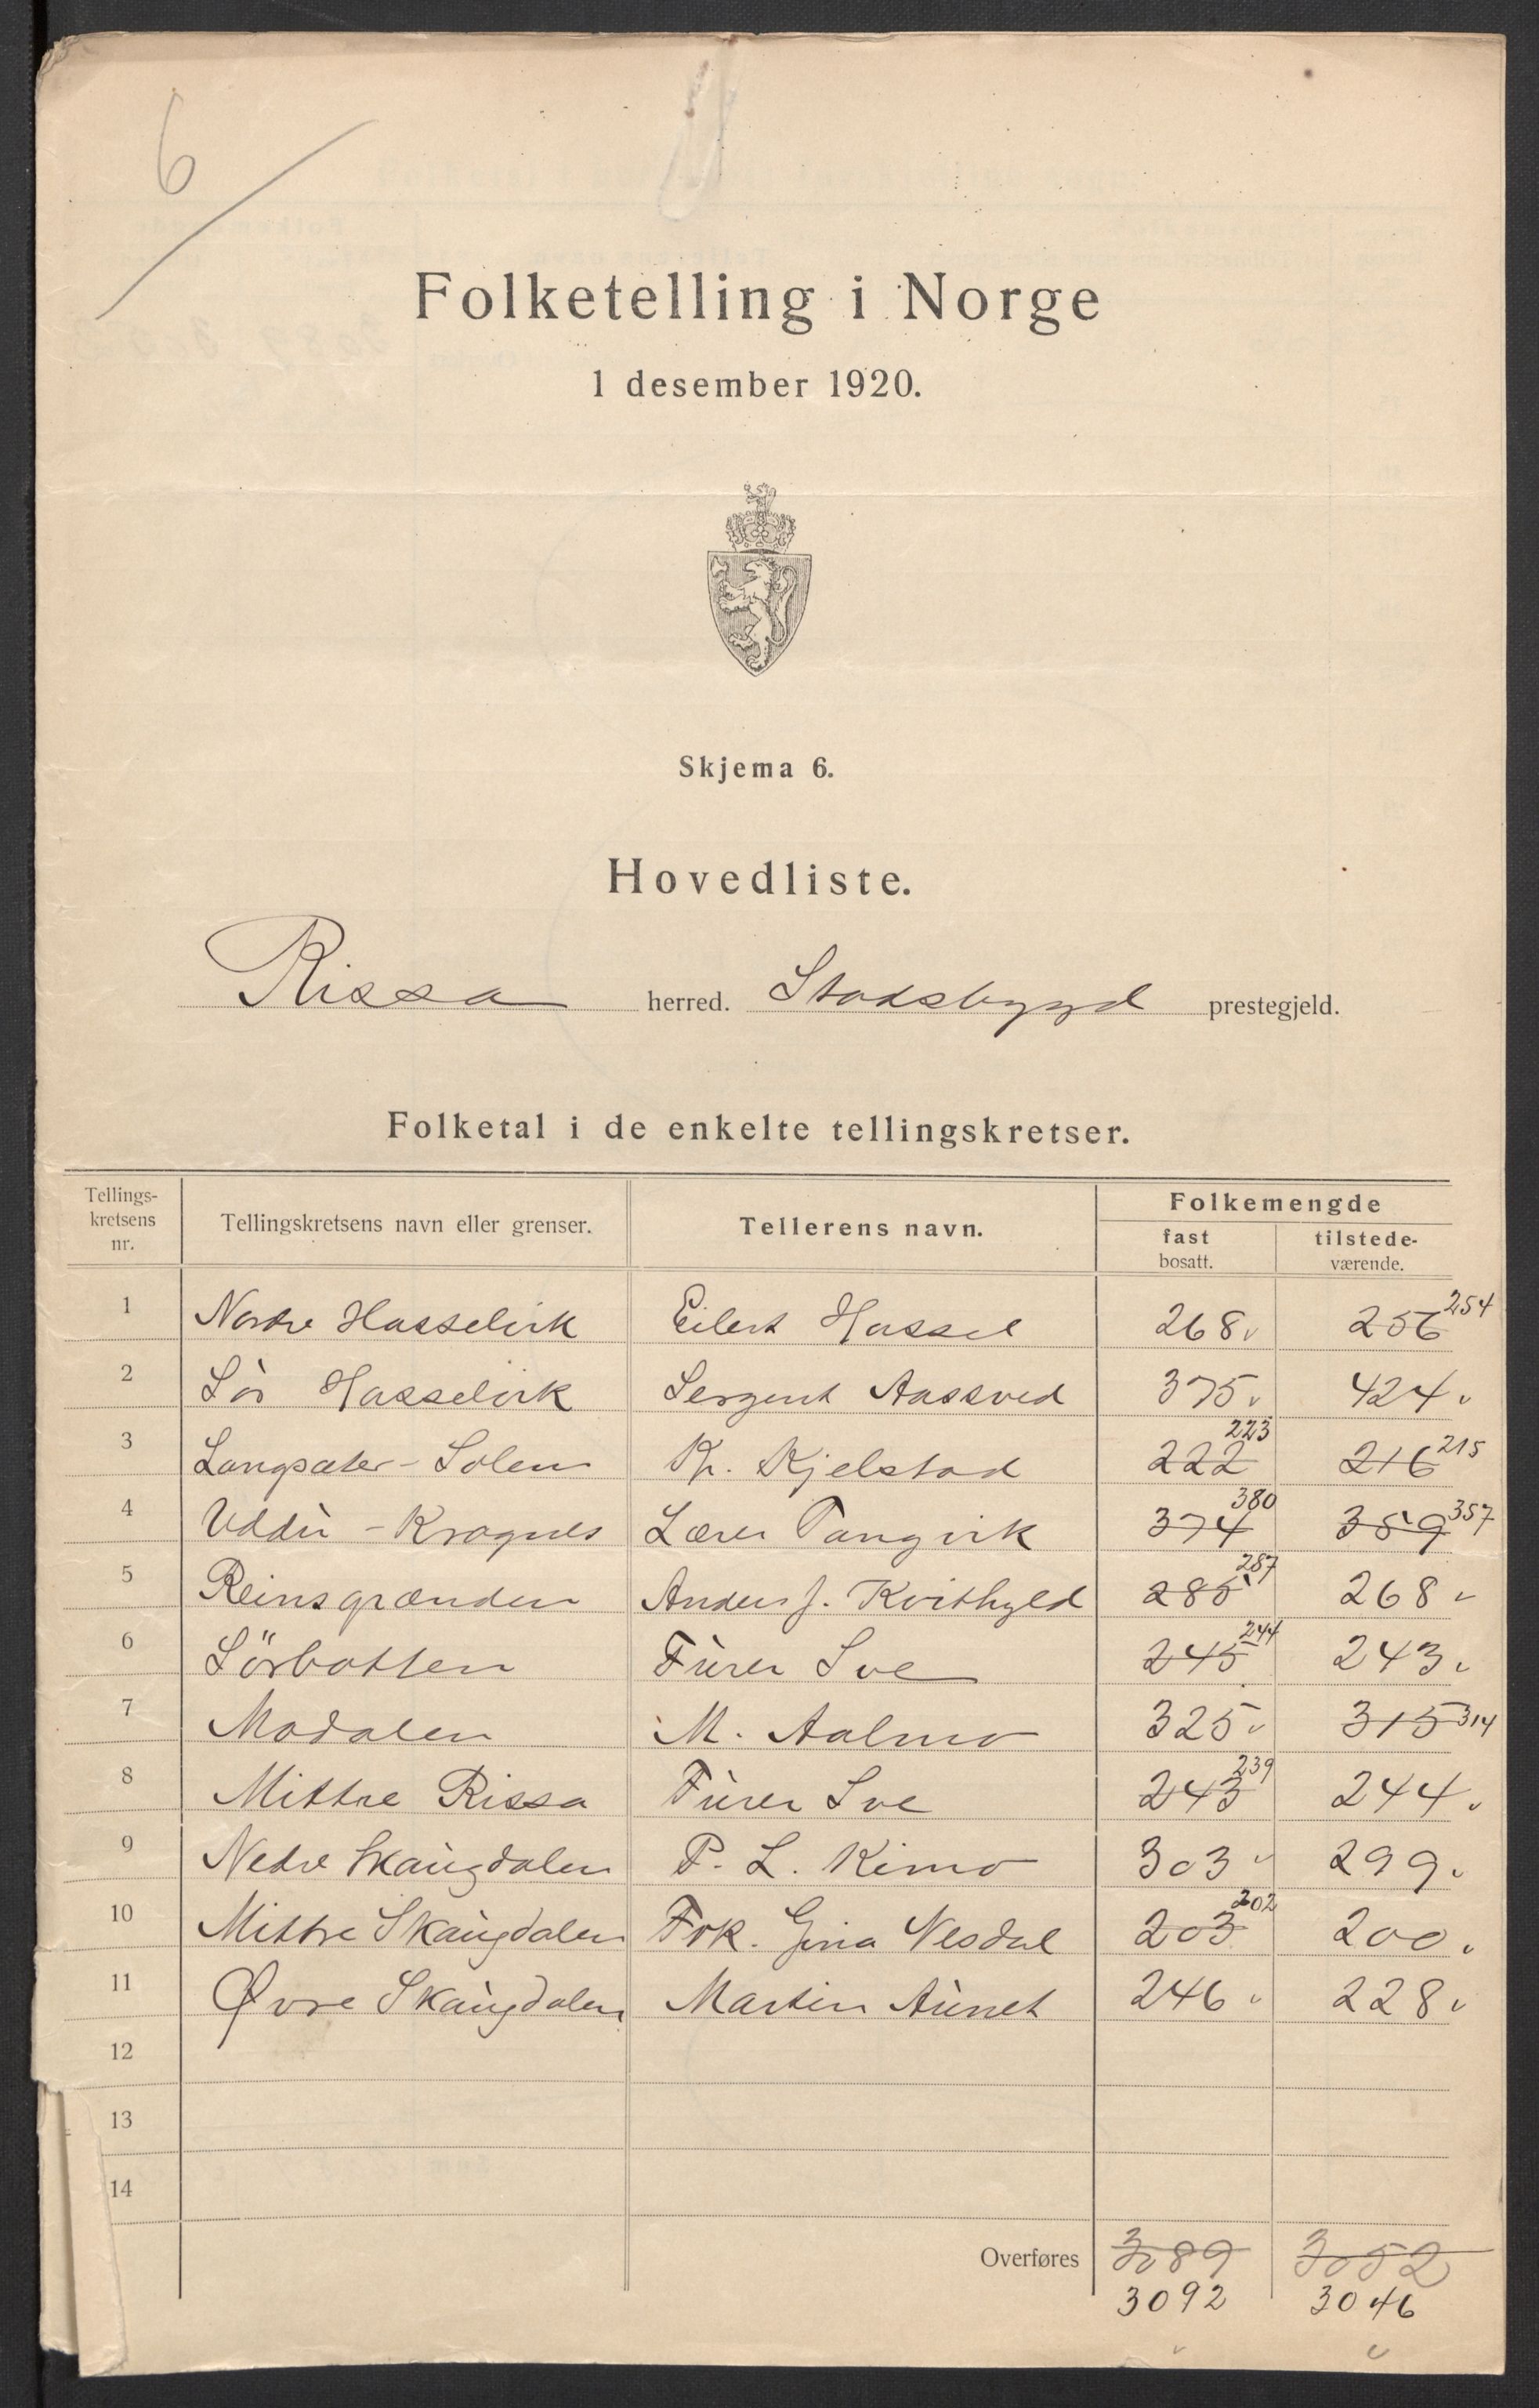 6
Folketelling i Norge
1 desember 1920.
Skjema 6.
Hovedliste.
Rissa herred. Stadsbygd prestegjeld.
Folketal i de enkelte tellingskretser.
Tellings-kretsens nr. Tellingskretsens navn eller grenser. Tellerens navn. Folkemengde
fast bosatt. tilstede-værende.
1 Nordre Hasselvik Eilert Hassel 268 256 254
2 Sör Hasselvik Sergent Aassved 375 424
3 Langsæter - Solem Kr. Kjelstad 222 223 216 215
4 Uddu - Kragnes Lærer Tangvik 374 380 359 357
5 Reinsgrænden Anders J. Kvithyld 285 287 268
6 Sörbotten Furer Sve 245 244 243
7 Modalen M. Aalmo 325 315 314
8 Mittre Rissa Furer Sve 243 239 244
9 Nedre Skaugdalen P. L. Kimo 303 299
10 Mittre Skaugdalen Frk. Gina Nesdal 203 202 200
11 Øvre Skaugdalen Martin Aunet 246 228
12
13
14
Overføres 3089 3052
3092 3046